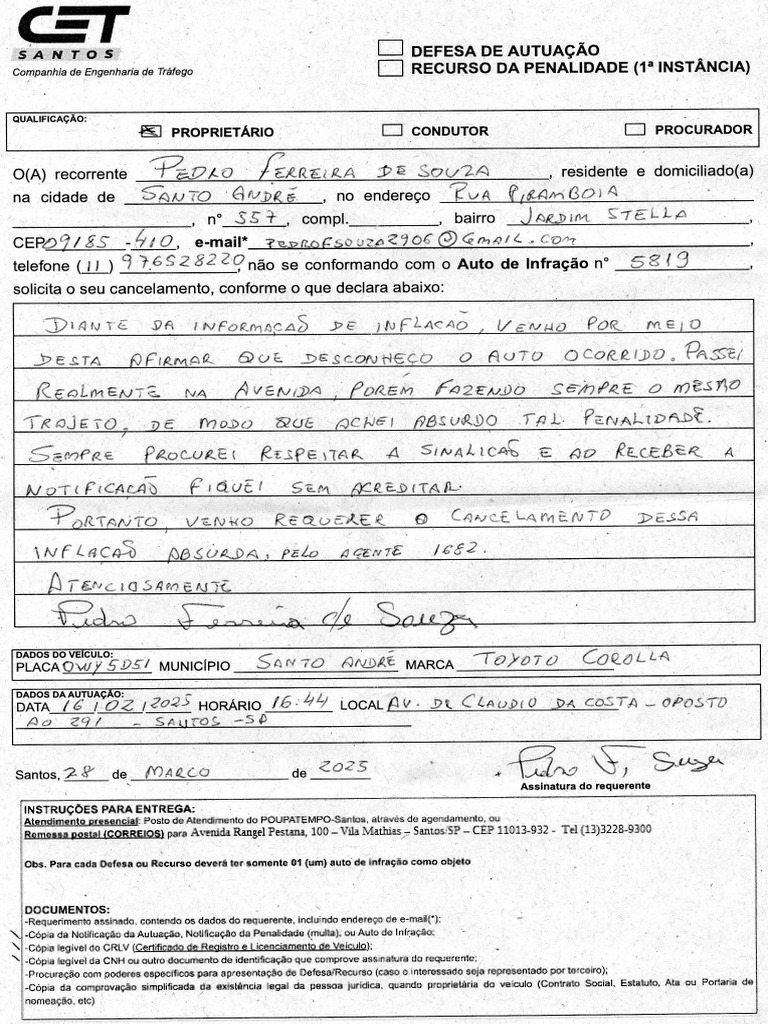 CET
SANTOS
Companhia de Engenharia de Tráfego
DEFESA DE AUTUAÇÃO
RECURSO DA PENALIDADE (1ª INSTÂNCIA)
QUALIFICAÇÃO:
PROPRIETÁRIO CONDUTOR PROCURADOR
O(A) recorrente PEDRO FERREIRA DE SOUZA, residente e domiciliado(a)
na cidade de SANTO ANDRÉ, no endereço RUA PIRAMBOIA
, n° 557, compl. , bairro JARDIM STELLA,
CEP 09185-410, e-mail* PEDROFSOUZA2906@GMAIL.COM,
telefone (11) 976528220, não se conformando com o Auto de Infração n° 5819,
solicita o seu cancelamento, conforme o que declara abaixo:
DIANTE DA INFORMAÇÃO DE INFLAÇÃO, VENHO POR MEIO
DESTA AFIRMAR QUE DESCONHEÇO O AUTO OCORRIDO. PASSEI
REALMENTE NA AVENIDA, POREM FAZENDO SEMPRE O MESMO
TRAJETO, DE MODO QUE ACHEI ABSURDO TAL PENALIDADE.
SEMPRE PROCUREI RESPEITAR A SINALICÃO E AO RECEBER A
NOTIFICACÃO FIQUEI SEM ACREDITAR.
PORTANTO, VENHO REQUERER O CANCELAMENTO DESSA
INFLAÇÃO ABSURDA, PELO AGENTE 1682.
ATENCIOSAMENTE
Pedro Ferreira de Souza
DADOS DO VEÍCULO:
PLACA OWY5D51 MUNICÍPIO SANTO ANDRÉ MARCA TOYOTO COROLLA
DADOS DA AUTUAÇÃO:
DATA 16/02/2025 HORÁRIO 16:44 LOCAL AV. DR CLAUDIO DA COSTA – OPOSTO
AO 291 - SANTOS -SP
Santos, 28 de MARCO de 2025 Pedro F, Souza
Assinatura do requerente
INSTRUÇÕES PARA ENTREGA:
Atendimento presencial: Posto de Atendimento do POUPATEMPO-Santos, através de agendamento, ou
Remessa postal (CORREIOS) para Avenida Rangel Pestana, 100 – Vila Mathias – Santos/SP – CEP 11013-932 - Tel (13)3228-9300
Obs. Para cada Defesa ou Recurso deverá ter somente 01 (um) auto de infração como objeto
DOCUMENTOS:
-Requerimento assinado, contendo os dados do requerente, incluindo endereço de e-mail(*);
-Cópia da Notificação da Autuação, Notificação da Penalidade (multa), ou Auto de Infração;
-Cópia legível do CRLV (Certificado de Registro e Licenciamento de Veículo);
-Cópia legível da CNH ou outro documento de identificação que comprove assinatura do requerente;
-Procuração com poderes específicos para apresentação de Defesa/Recurso (caso o interessado seja representado por terceiro);
-Cópia da comprovação simplificada da existência legal da pessoa jurídica, quando proprietária do veículo (Contrato Social, Estatuto, Ata ou Portaria de
nomeação, etc)